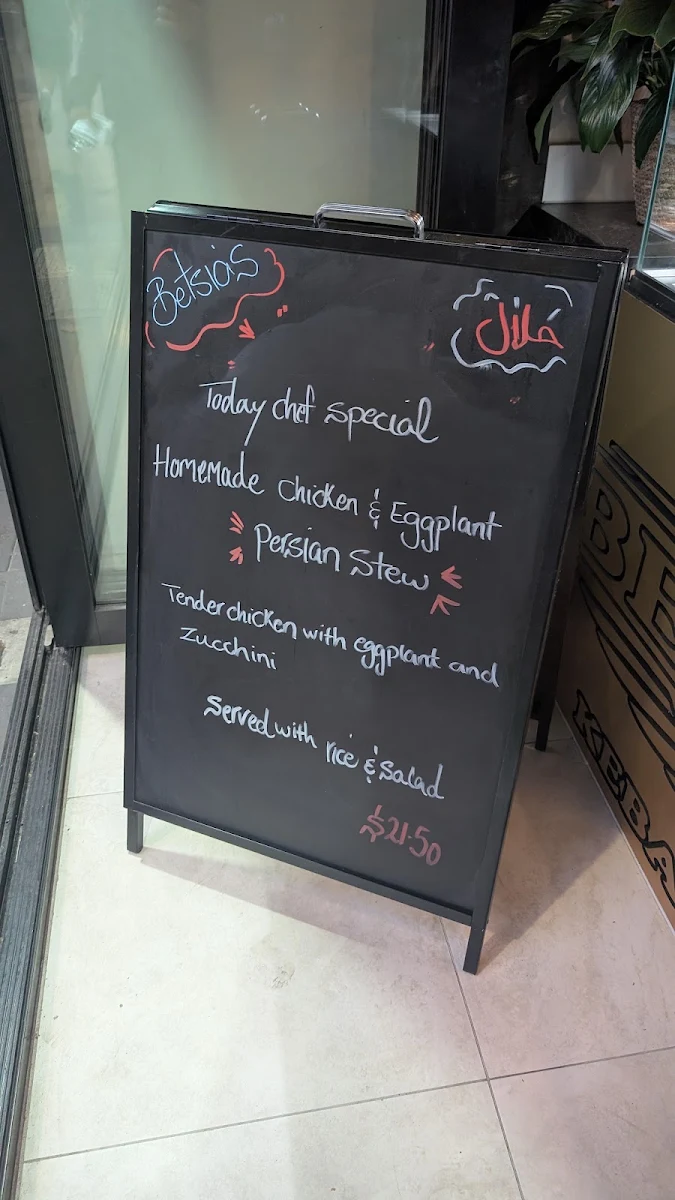 Betsia's
حلال
Today chef special
Homemade chicken & Eggplant
Persian Stew
Tender chicken with eggplant and
Zucchini
Served with rice & Salad
$21.50
BE
KEBA